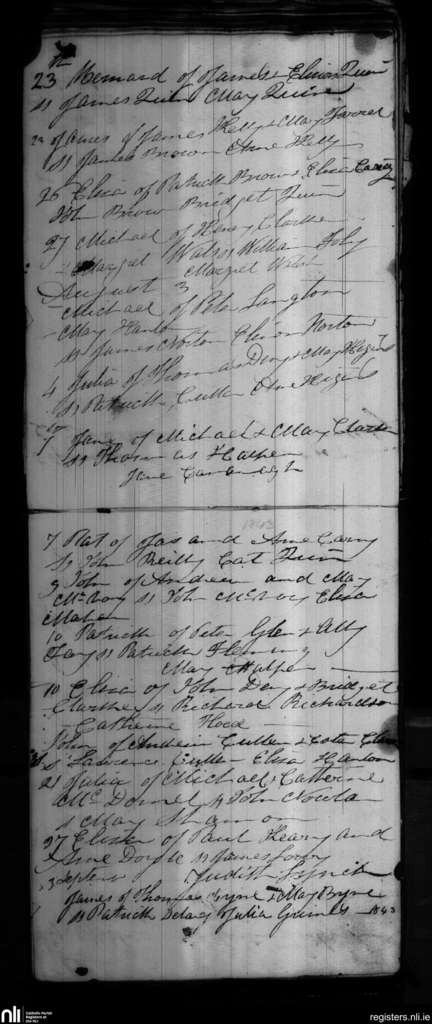 23 Bernard of James & Elinor Quin
ss James Quin May Quin
of James Kelly & May Farrel
ss James Brown Anne Kelly
26 Eliza of Patrick Brown & Eliza
John Brow Bridget Quin
27 Michael of Henry Clarke
& Margret Walsh William Foly
Margret Walsh
August 3
Michael of Peter Langton
May Hanlo
ss James Norton Elinor Norton
4 Julia of Thomas Deny & May Higins
ss Patrick Cullen Anne Higins
7 Jane of Michael & May Clarke
ss Thomas Halpen
Jane Cavanagh
7 Pat of Jas and Anne Carny
ss John Reilly Cat Quin
9 John of Andrew and May
McEvoy ss John McEvoy Eliza
Maher
10 Patrick of Peter Glen & Ally
Fay ss Patrick Fleming
May Halpen
10 Eliza of John Deny & Bridget
Clarke ss Richard Richardson
Catherine Hoed
John of Andrew Cullen & Ester
s Lawrence Cullen Eliza Hanlon
21 Julia of Michael & Catherine
McDonnel ss John Nowla
s May Shannon
27 Elisa of Paul Heary and
Anne Doyle ss James
3 Septem Judith Lynch
James of Thomas Byrne & May Byrne
ss Patrick Delany Julia Grimes 1843
nli Catholic Parish Registers at the NLI
registers.nli.ie